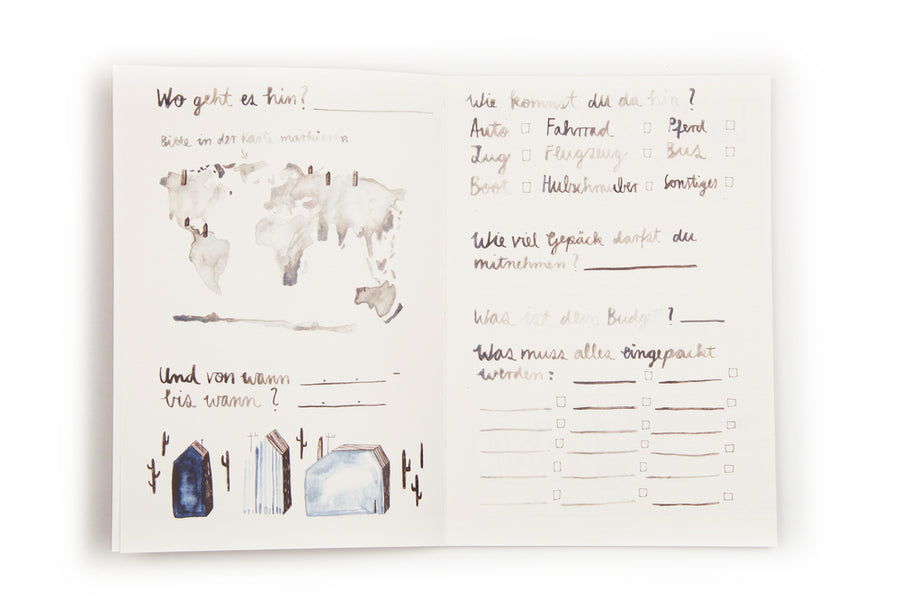 Wo geht es hin?
Bitte in der Karte markieren
Und von wann
bis wann?
Wie kommst du da hin?
Auto Fahrrad Pferd
Zug Flugzeug Bus
Boot Hubschrauber Sonstiges
Wie viel Gepäck darfst du
mitnehmen?
Was ist dein Budget?
Was muss alles eingepackt
werden: